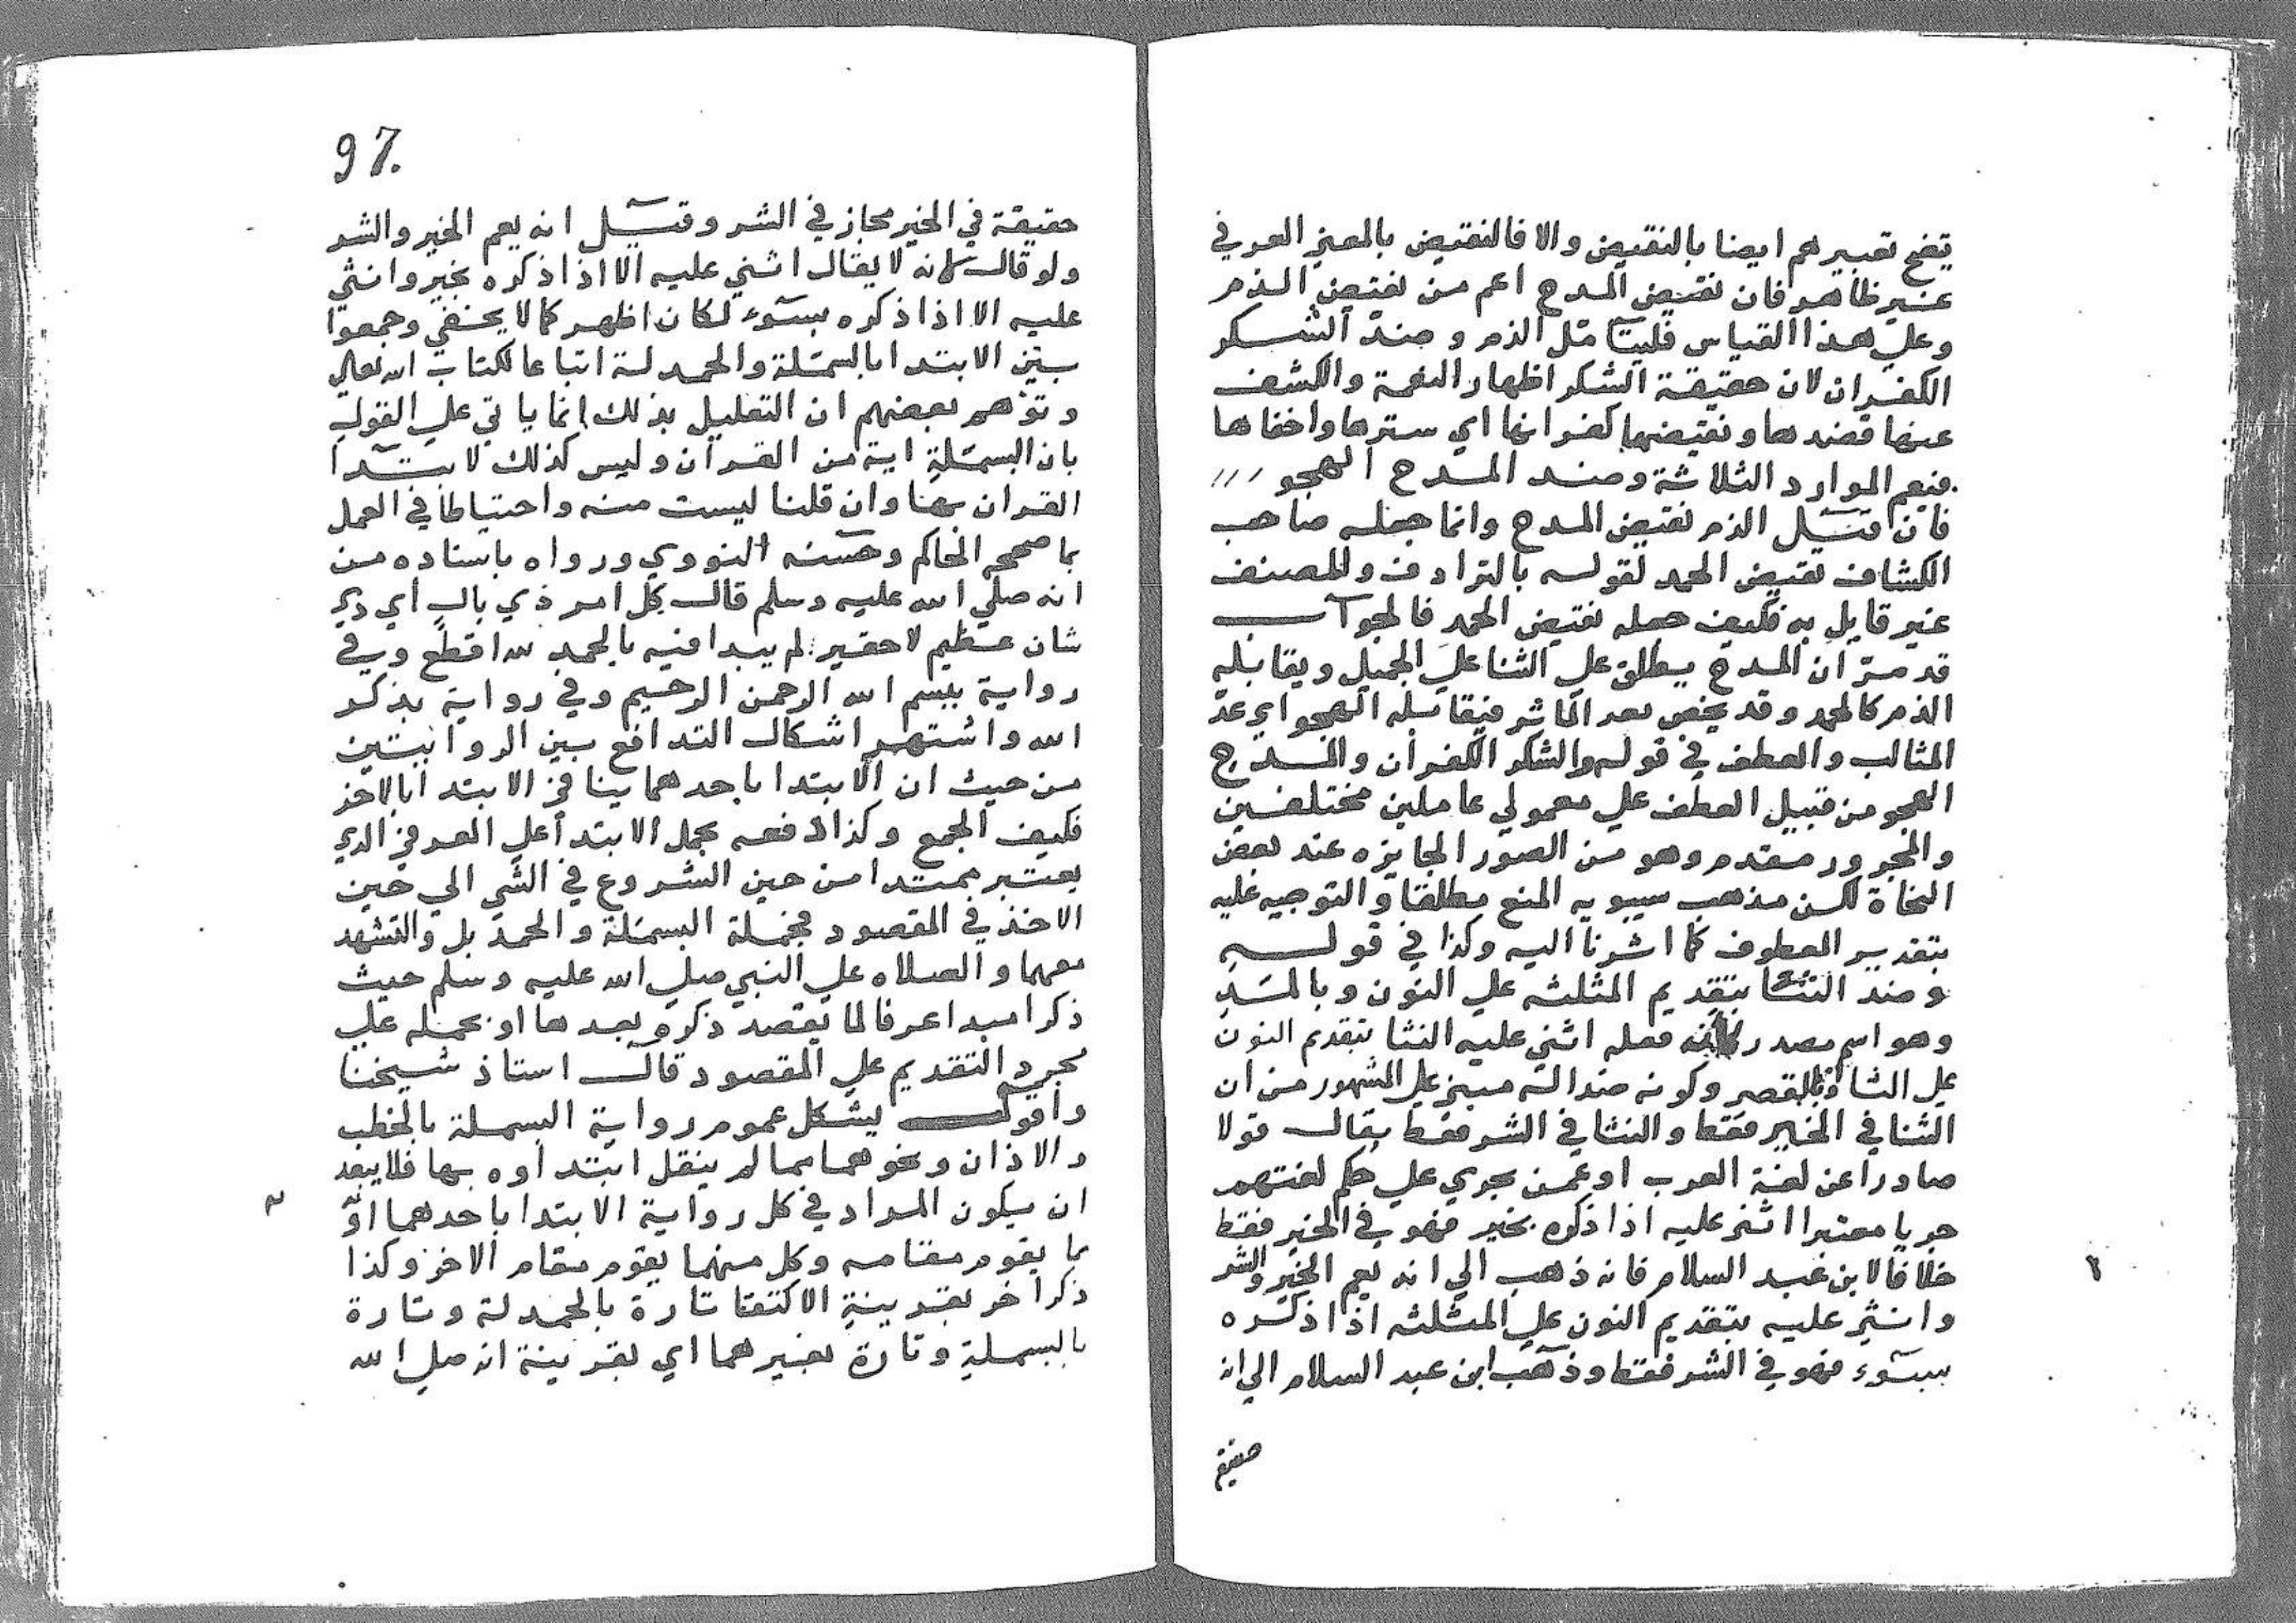 يقع تعبيرهم ايضا بالنقيض والا فالنقيض بالمعني العرفي
غير ظاهر فان نقيض المدح اعم من نقيض الذم
وعلي هذا القياس فليتامل الذم وضد الشكر
الكفران لان حقيقة الشكر اظهار النعمة والكشف
عنها فضدها ونقيضها كفرانها اي سترها واخفاها
فيعم الموارد الثلاثة وضد المدح الهجو
فان قيل الذم نقيض المدح وانما جعله صاحب
الكشاف نقيض الحمد لقوله بالترادف والمصنف
غير قايل به فكيف جعله نقيض الحمد فالجواب
قد مر ان المدح يطلق علي الثنا علي الجميل ويقابله
الذم كالحمد وقد يخص بعد الماثر فيقابله الهجو اي عد
المثالب والعطف في قوله والشكر الكفران والمدح
الهجو من قبيل العطف علي معمولي عاملين مختلفين
والمجرور مقدم وهو من الصور الجايزه عند بعض
النحاة لكن مذهب سيبويه المنع مطلقا والتوجيه عليه
بتقدير المعطوف كما اشرنا اليه وكذا في قوله
وضد الثنا بتقديم المثلثه علي النون وبالمد
وهو اسم مصدر فعله اثني عليه النثا بتقديم النون
علي الثا وبالقصر وكونه ضدا له مبني علي المشهور من ان
الثنا في الخير فقط والنثا في الشر فقط يقال قولا
صادرا عن لغة العرب او عمن يجري علي حكم لغتهم
جريا معتبرا اثني عليه اذا ذكره بخير فهو في الخير فقط
خلافا لابن عبد السلام فانه ذهب الي انه يعم الخير والشر
وانثي عليه بتقديم النون علي المثلثه اذا ذكره
بسوء فهو في الشر فقط وذهب ابن عبد السلام الي انه
حقيقة
97.
حقيقة في الخير مجاز في الشر وقيل انه يعم الخير والشر
ولو قال لانه لا يقال اثني عليه الا اذا ذكره بخير وانثي
عليه الا اذا ذكره بسوء لكان اظهر كما لا يخفي وجمعوا
بين الابتدا بالبسملة والحمدلة اتباعا لكتاب الله تعالي
وتوهم بعضهم ان التعليل بذلك انما ياتي علي القول
بان البسملة اية من القران وليس كذلك لابتدا
القران بها وان قلنا ليست منه واحتياطا في العمل
بما صححه الحاكم وحسنه النووي ورواه باسناده من
انه صلي الله عليه وسلم قال كل امر ذي بال اي ذي
شان عظيم لا حقير لم يبدا فيه بالحمد لله اقطع وفي
رواية ببسم الله الرحمن الرحيم وفي رواية بذكر
الله واشتهر اشكال التدافع بين الروايتين
من حيث ان الابتدا باحدهما ينافي الابتدا بالاخر
فكيف الجمع وكذا دفعه بحمل الابتدا علي العرفي الذي
يعتبر ممتدا من حين الشروع في الشي الي حين
الاخذ في المقصود فجملة البسملة والحمد بل والتشهد
معهما والصلاه علي النبي صلي الله عليه وسلم حيث
ذكرا مبدا عرفا لما يقصد ذكره بعدها او بحمله علي
مجرد التقديم علي المقصود قال استاذ شيخنا
واقول يشكل عموم رواية البسملة بالخطب
والاذان ونحوهما مما لم ينقل ابتداوه بها فلا يبعد
ان يكون المراد في كل رواية الابتدا باحدهما او
ما يقوم مقامه وكل منهما يقوم مقام الاخر وكذا
ذكر اخر بقرينة الاكتفا تارة بالحمدلة وتارة
بالبسملة وتارة بغيرهما اي بقرينة انه صلي الله